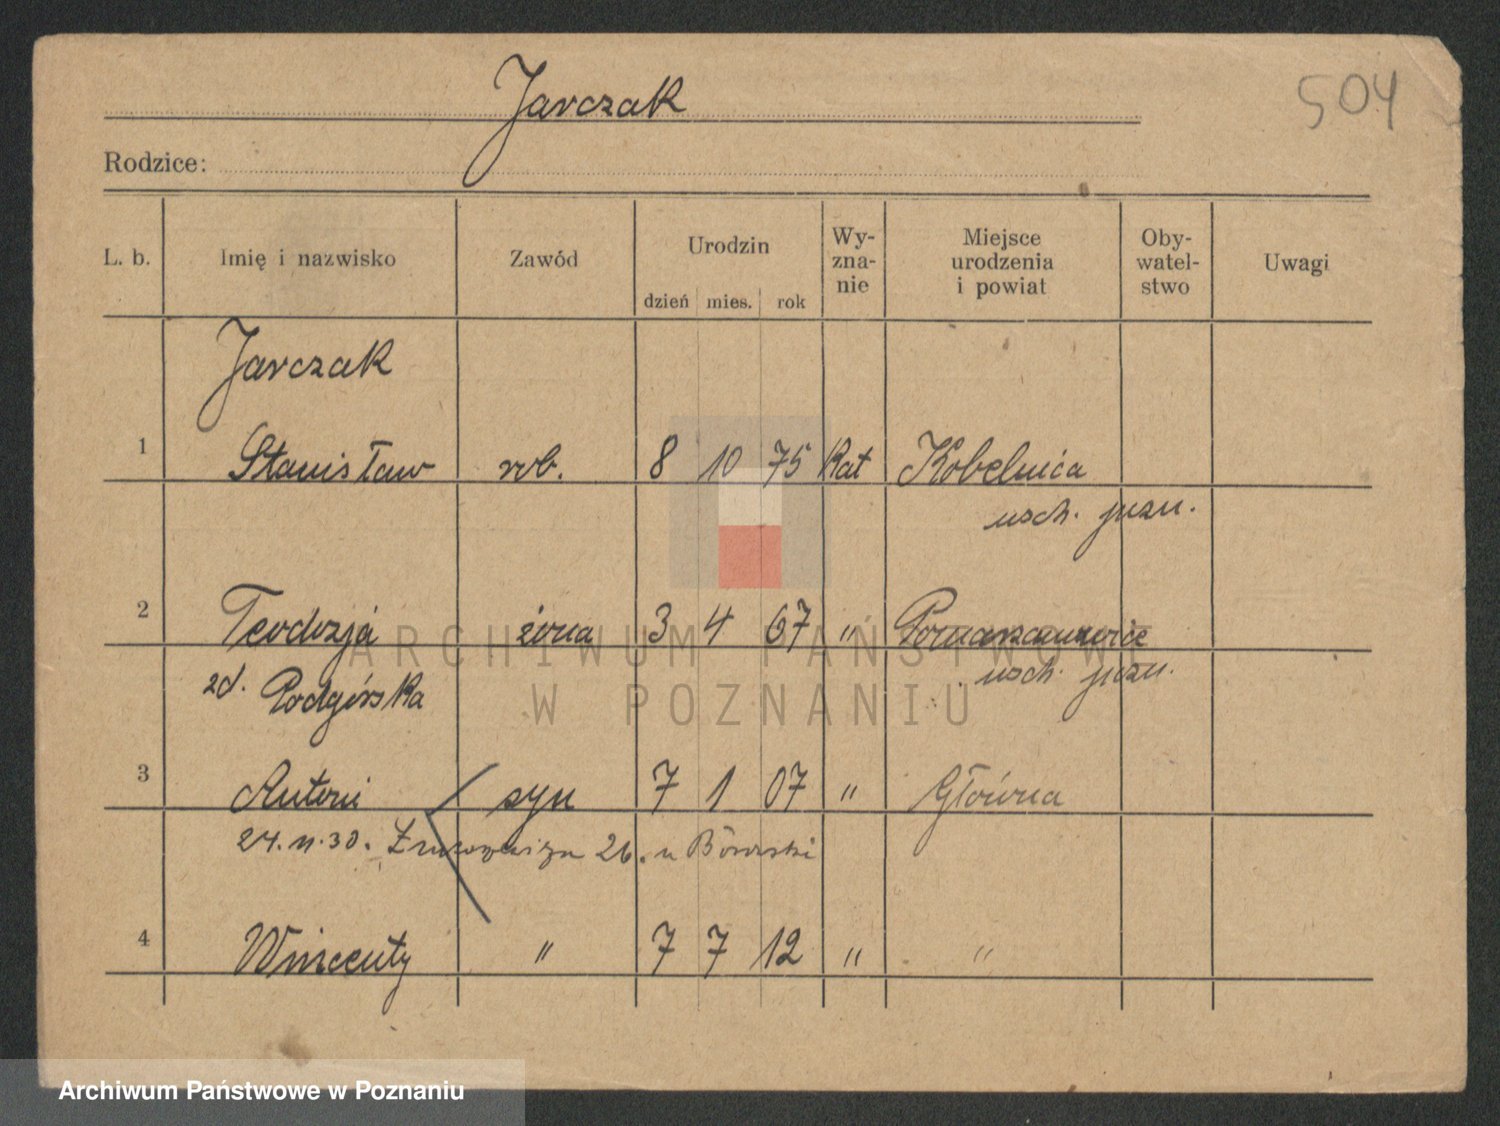 Jarczak
504
Rodzice:
L. b. Imię i nazwisko Zawód Urodzin dzień mies. rok Wy-zna-nie Miejsce urodzenia i powiat Oby-watel-stwo Uwagi
Jarczak
1 Stanisław rob. 8 10 75 kat Kobelnica
wsch. pozn.
2 Teodozja żona 3 4 67 " Pomarzanowice
zd. Podgórska wsch. pozn.
3 Antoni syn 7 1 07 " Główna
24. 11. 30. 26. u
4 Wincenty " 7 7 12 " "
ARCHIWUM PAŃSTWOWE
W POZNANIU
Archiwum Państwowe w Poznaniu